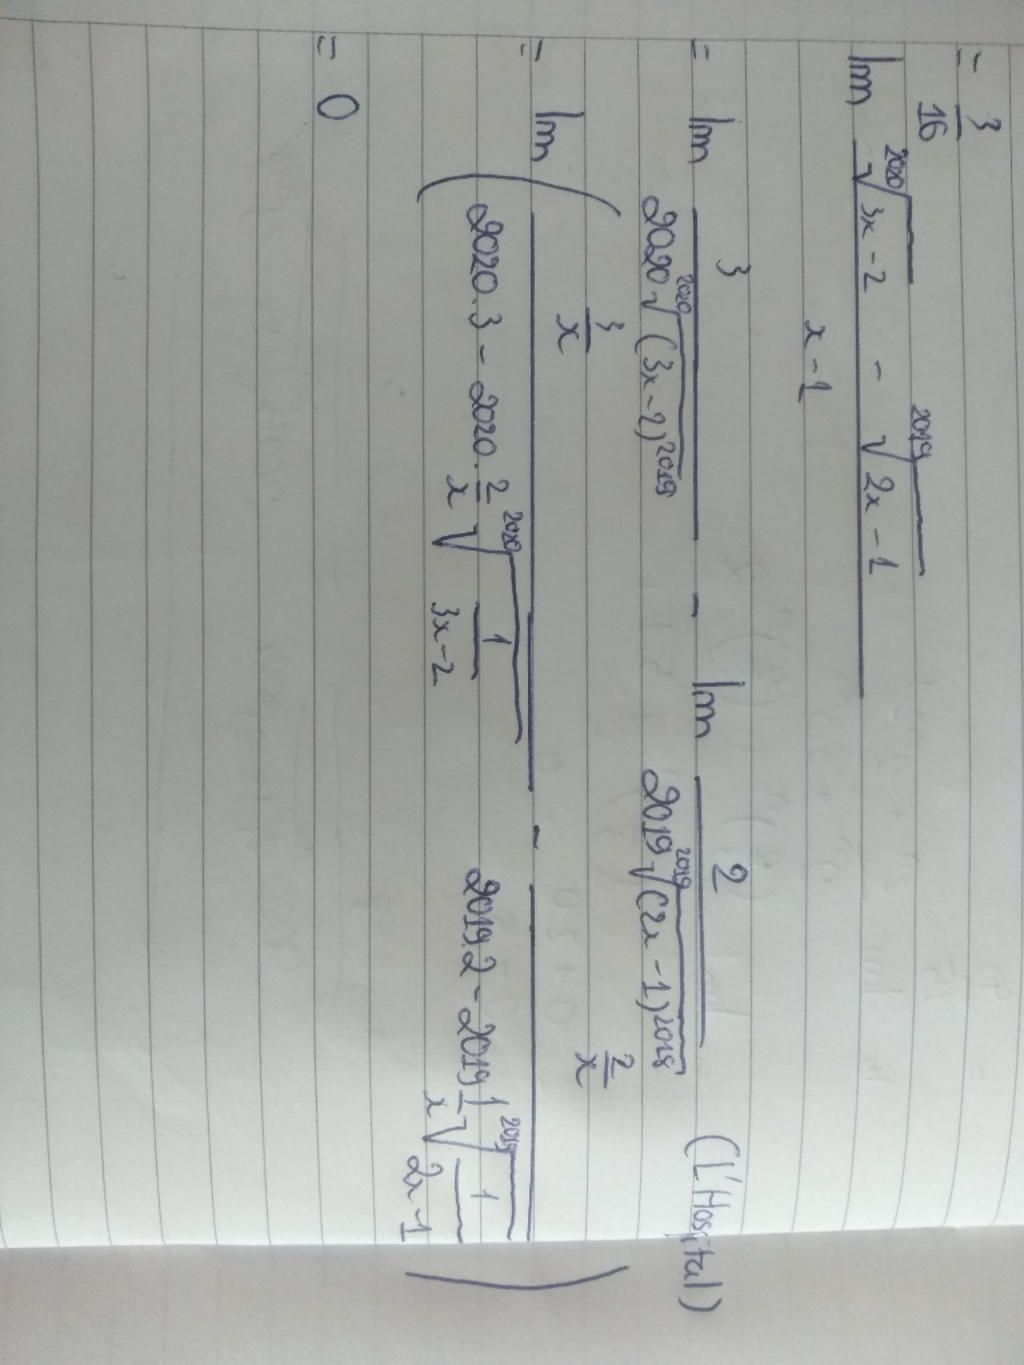 = 3/16
lim (²⁰²⁰√(3x-2) - ²⁰¹⁹√(2x-1)) / (x-1)
= lim 3 / (2020 ²⁰²⁰√((3x-2)²⁰¹⁹)) - lim 2 / (2019 ²⁰¹⁹√((2x-1)²⁰¹⁸)) (L'Hospital)
= lim ( (3/x) / (2020.3 - 2020.(2/x) ²⁰²⁰√(1/(3x-2))) - (2/x) / (2019.2 - 2019 (1/x) ²⁰¹⁹√(1/(2x-1))) )
= 0